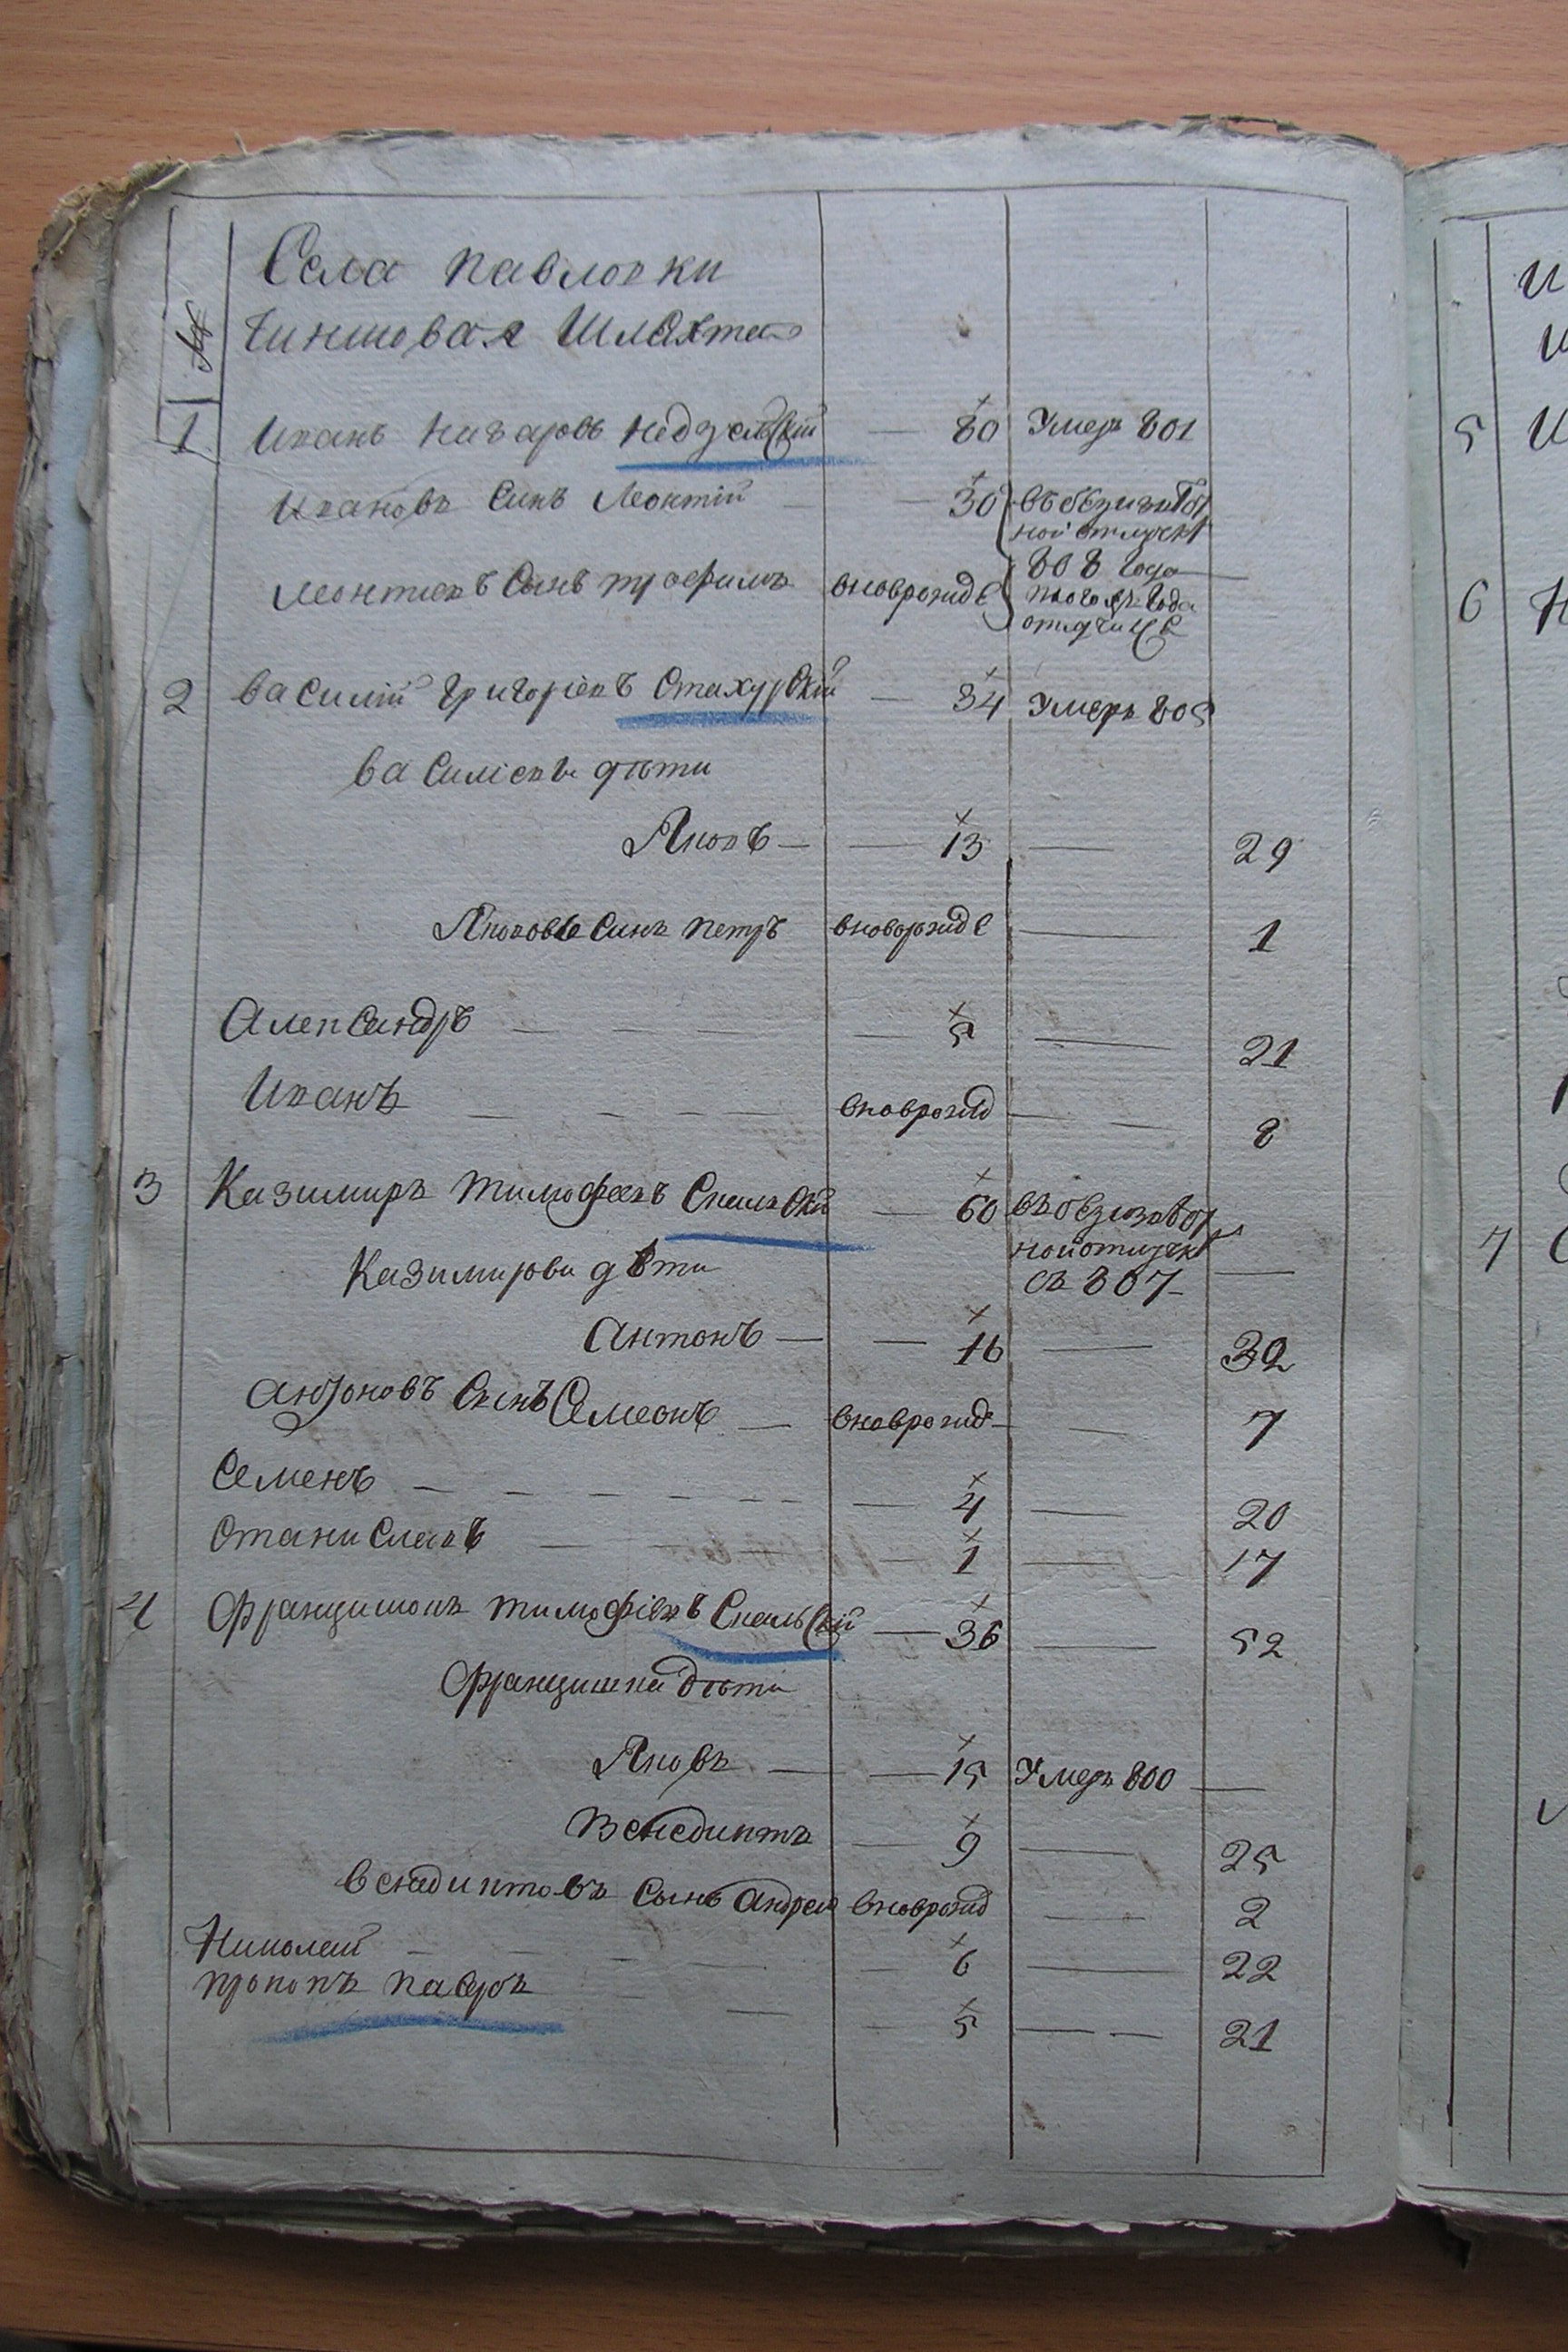 Села Павловки
Чиншовая Шляхта
№
1 Иванъ Назаровъ Недзельскій — 80 Умеръ 801
Ивановъ Синъ Леонтій — 30 въ безизвѣст
ной отлучкѣ
808 Года —
Леонтіевъ Сынъ трофимъ вноврожде того жъ Года
отлучился
2 василій Григоріевъ Стахурскій — 34 Умеръ 805
василіевы дѣти
Яковъ — — 13 — 29
Яковов Синъ Петръ вноворжде — 1
Александръ — — — — 5 — 21
Иванъ — — — — вноврожд — — 8
3 Казимиръ тимофеевъ Скальскій — 60 въ безизвѣст
ной отлучкѣ
съ 807 —
Казимирови дѣти
Антонъ — — 16 — 32
Антоновъ Синъ Семеонъ — вноврожд — — 7
Семенъ — — — — — — — 4 — 20
Станиславъ — — — — 1 — 17
4 Францишокъ тимофіевъ Скальскій — 36 — 52
Францишка дѣти
Яковъ — — 15 Умеръ 800 —
Венедиктъ — 9 — 25
венедиктовъ Сынъ Андрей вноврожд — 2
Николай — — — — — 6 — 22
Прокопъ — — — 5 — — 21
5 И
6 Н
7 С